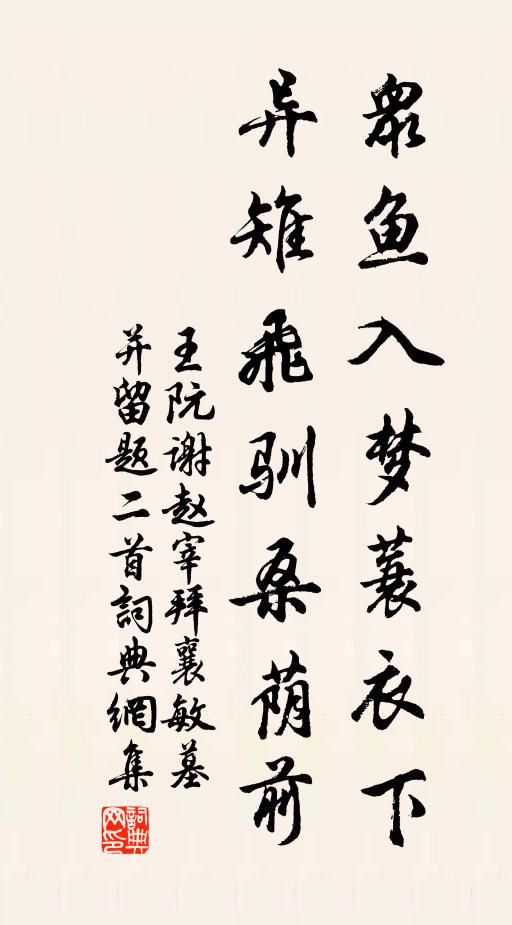 眾鱼入梦蓑衣下
异雉飛驯桑荫前
王阮谢赵宰拜襄敏墓
并留题二首詞典網集
詞典網印